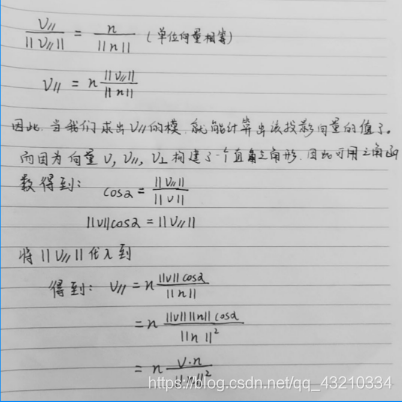 V∥/||V∥|| = n/||n|| (单位向量相等)
V∥ = n ||V∥||/||n||
因此,当我们求出V∥的模,就能计算出该投影向量的值了.
而因为向量V, V∥, V⊥构建了一个直角三角形.因此可用三角函
数得到: cosα = ||V∥||/||V||
||V||cosα = ||V∥||
将||V∥||代入到
得到: V∥ = n ||V||cosα/||n||
= n ||V||||n||cosα/||n||²
= n V·n/||n||²
https://blog.csdn.net/qq_43210334